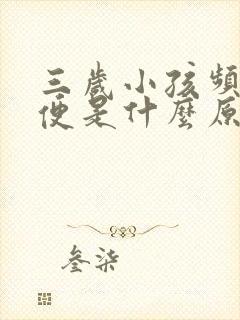 三歲小孩頻
便是什麼原
叄柒